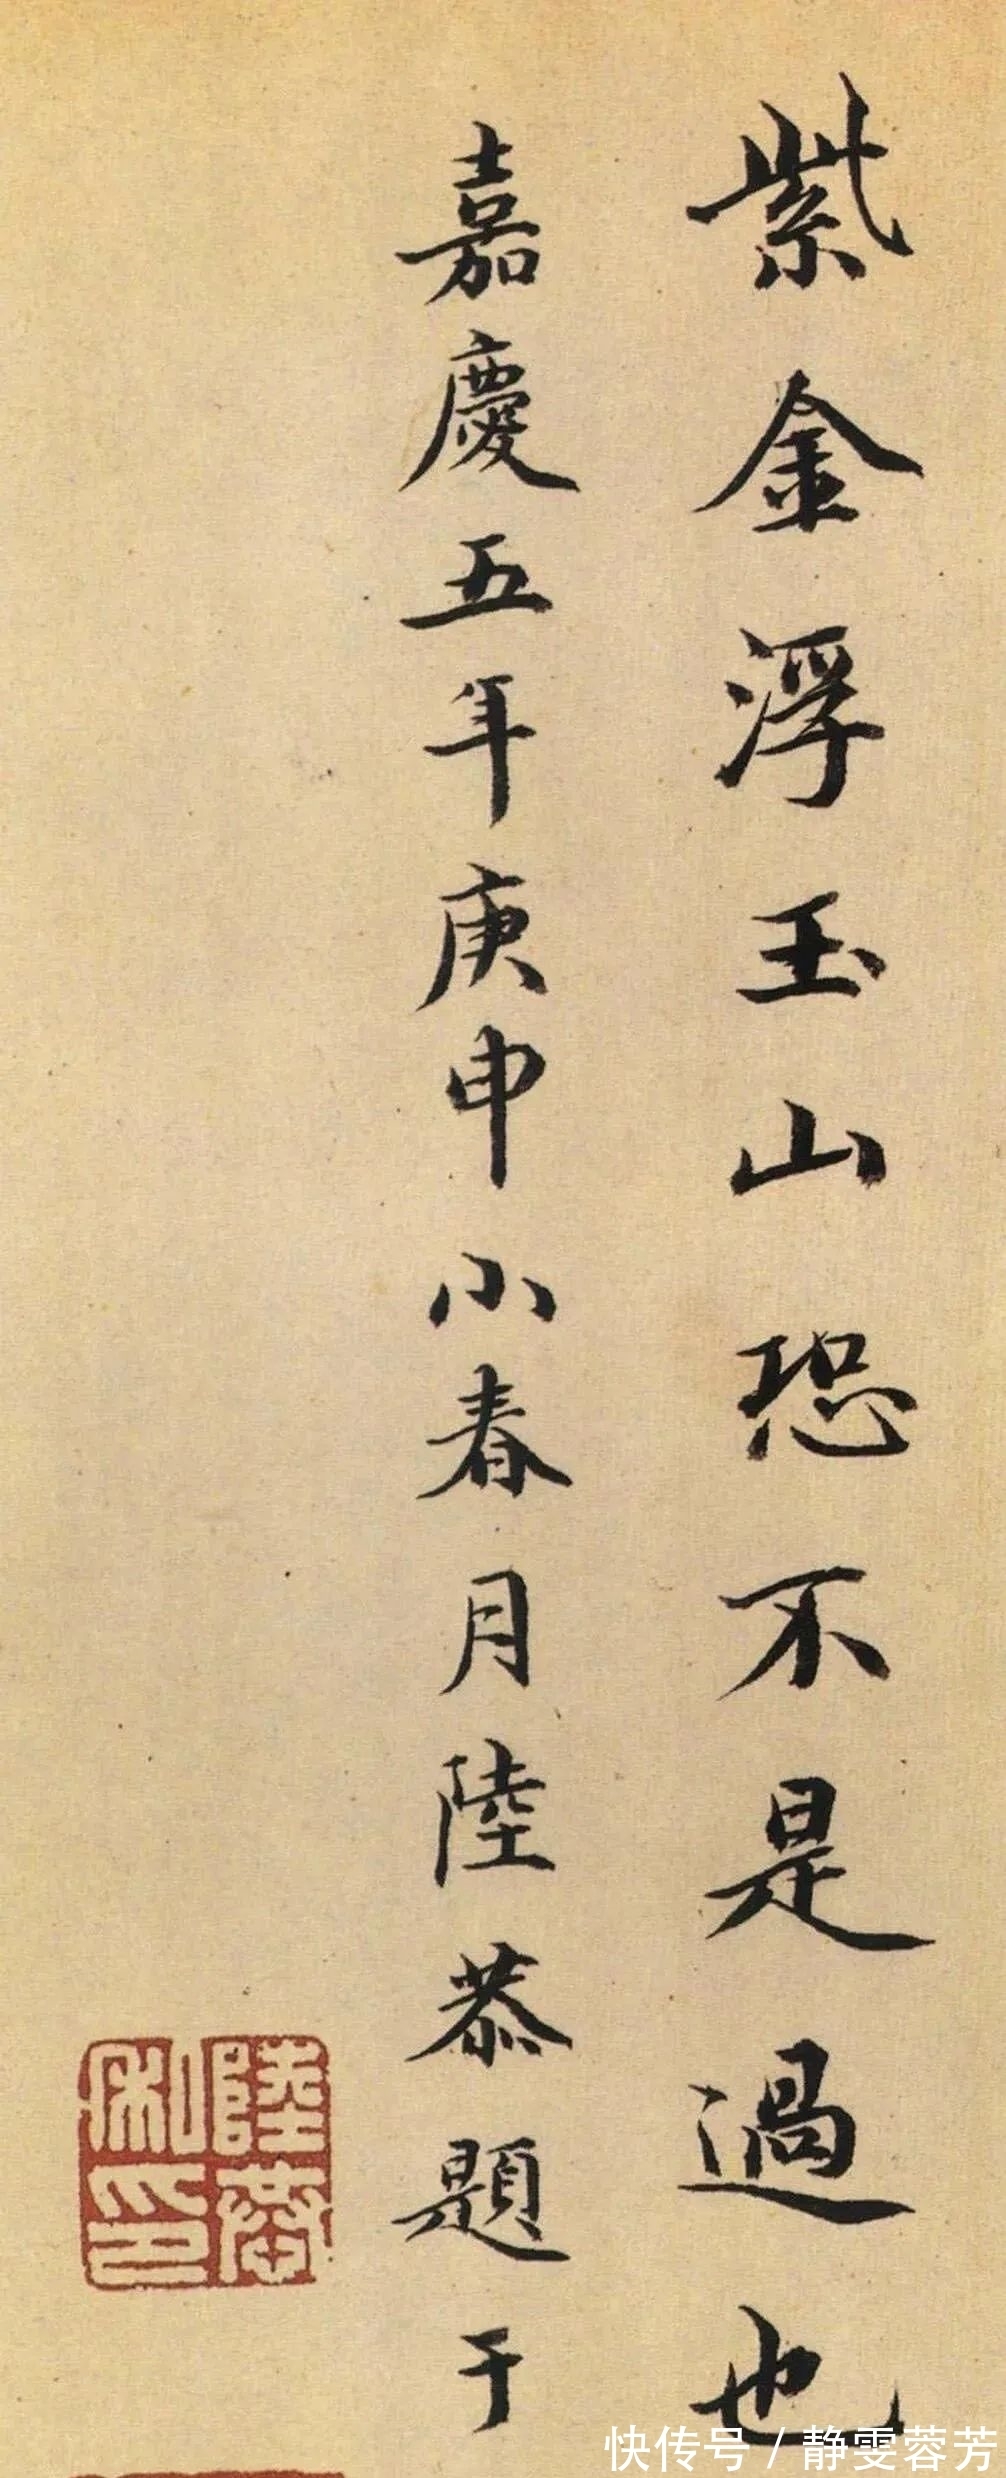 紫金浮玉山恐不是過也
嘉慶五年庚申小春月陸恭題于
快传号 / 静雯蓉芳